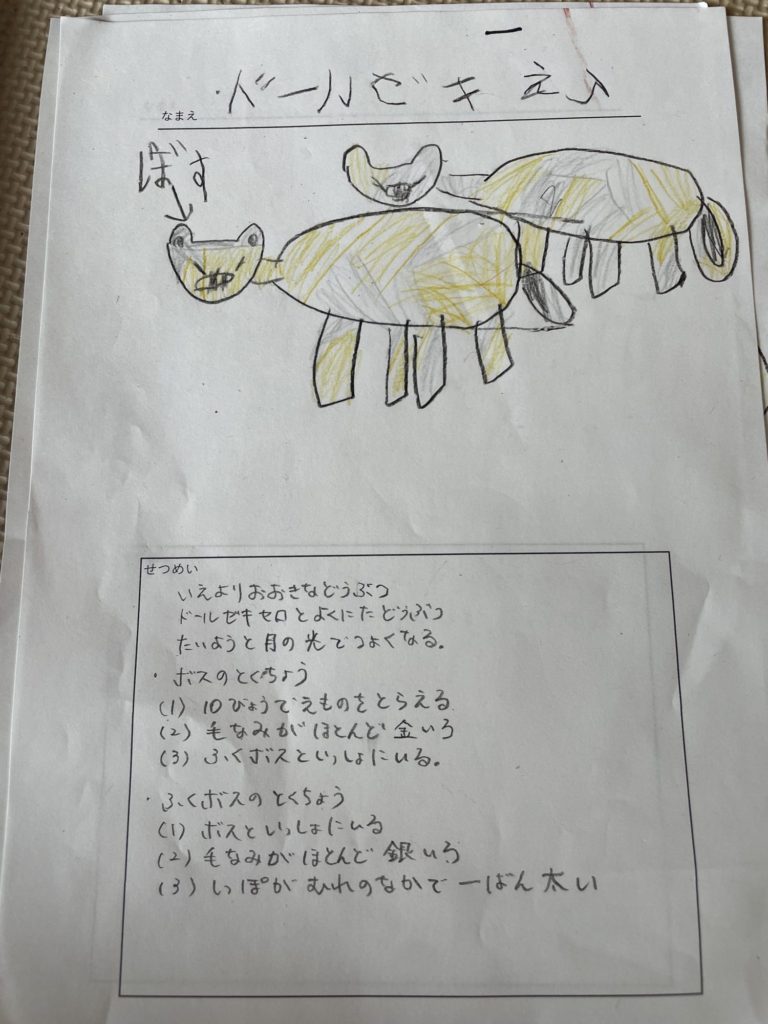 なまえ ドールゼキ
ぼす
せつめい
いえよりおおきなどうぶつ
ドールゼキセロとよくにたどうぶつ
たいようと月の光でつよくなる。
・ボスのとくちょう
(1) 10びょうでえものをとらえる
(2) 毛なみがほとんど金いろ
(3) ふくボスといっしょにいる。
・ふくボスのとくちょう
(1) ボスといっしょにいる
(2) 毛なみがほとんど銀いろ
(3) しっぽがむれのなかで一ばん太い